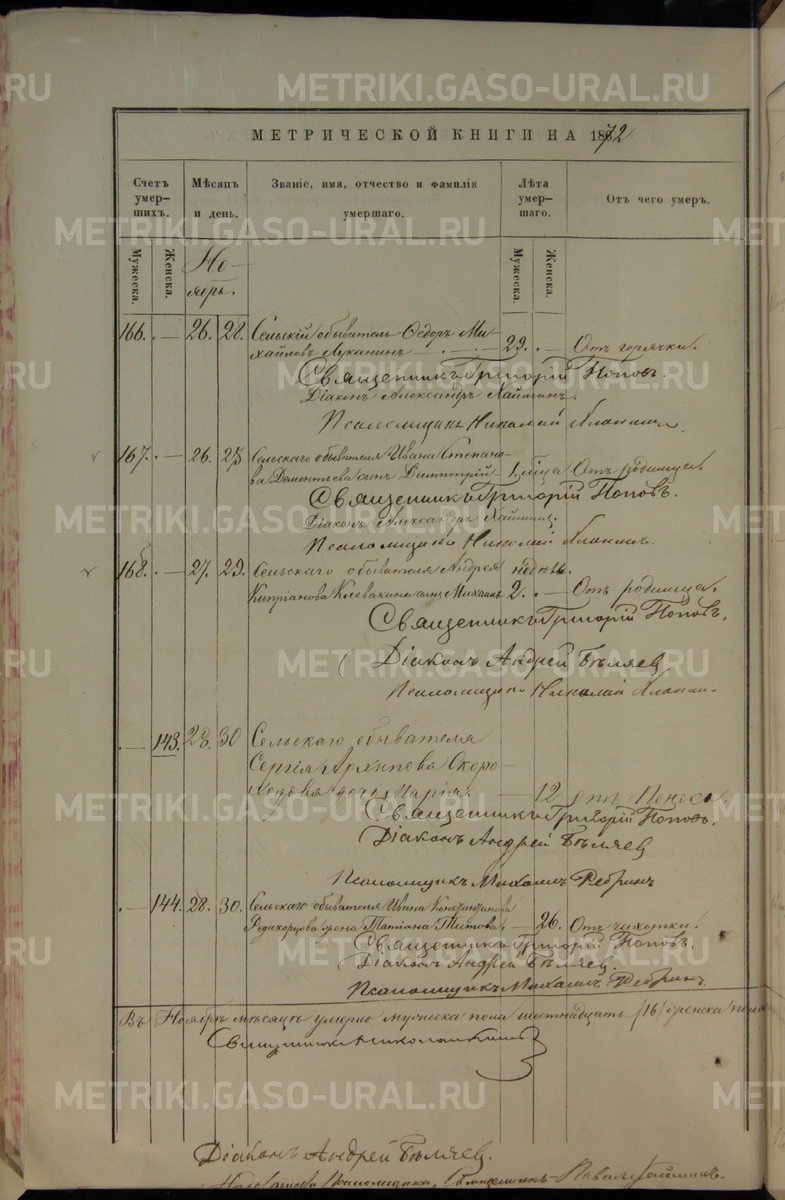 МЕТРИЧЕСКОЙ КНИГИ НА 1872
Счетъ умер-шихъ.
Мѣсяцъ и день.
Званіе, имя, отчество и фамилія умершаго.
Лѣта умер-шаго.
Отъ чего умеръ.
Мужеска.
Женска.
Но-
ябрь.
Мужеска.
Женска.
166. — 26. 28. Сельскій обыватель Ѳедоръ Ми-
хайловъ Луканинъ — 29. — Отъ горячки.
Священникъ Григорій Поповъ.
Діаконъ Александръ
Псаломщикъ Николай
167. — 26. 27. Сельскаго обывателя Ивана Степано-
ва Дементьева сынъ Димитрій 1. м҃ца Отъ родимца.
Священникъ Григорій Поповъ.
Діаконъ Александръ
Псаломщикъ Николай
168. — 27. 29. Сельскаго обывателя Андрея недѣль.
Кипріанова Клевакина сынъ Михаилъ 2. — Отъ родимца.
Священникъ Григорій Поповъ.
Діаконъ Андрей Бѣляевъ
Псаломщикъ Николай
— 143. 28. 30 Сельскаго обывателя
Сергія Архипова Скоро-
ходова дочь Марія. — 12 отъ Поноса
Священникъ Григорій Поповъ.
Діаконъ Андрей Бѣляевъ
Псаломщикъ Михаилъ Ребринъ
— 144. 28. 30. Сельскаго обывателя Ивана Константинова
жена Татіана Титова. — 26. Отъ чахотки.
Священникъ Григорій Поповъ.
Діаконъ Андрей Бѣляевъ.
Псаломщикъ Михаилъ Ребринъ
Въ Ноябрѣ мѣсяцѣ умерло мужеска пола шестнадцать (16) женска пола
Священникъ
Діаконъ Андрей Бѣляевъ.
Псаломщика, Священникъ Павелъ
METRIKI.GASO-URAL.RU